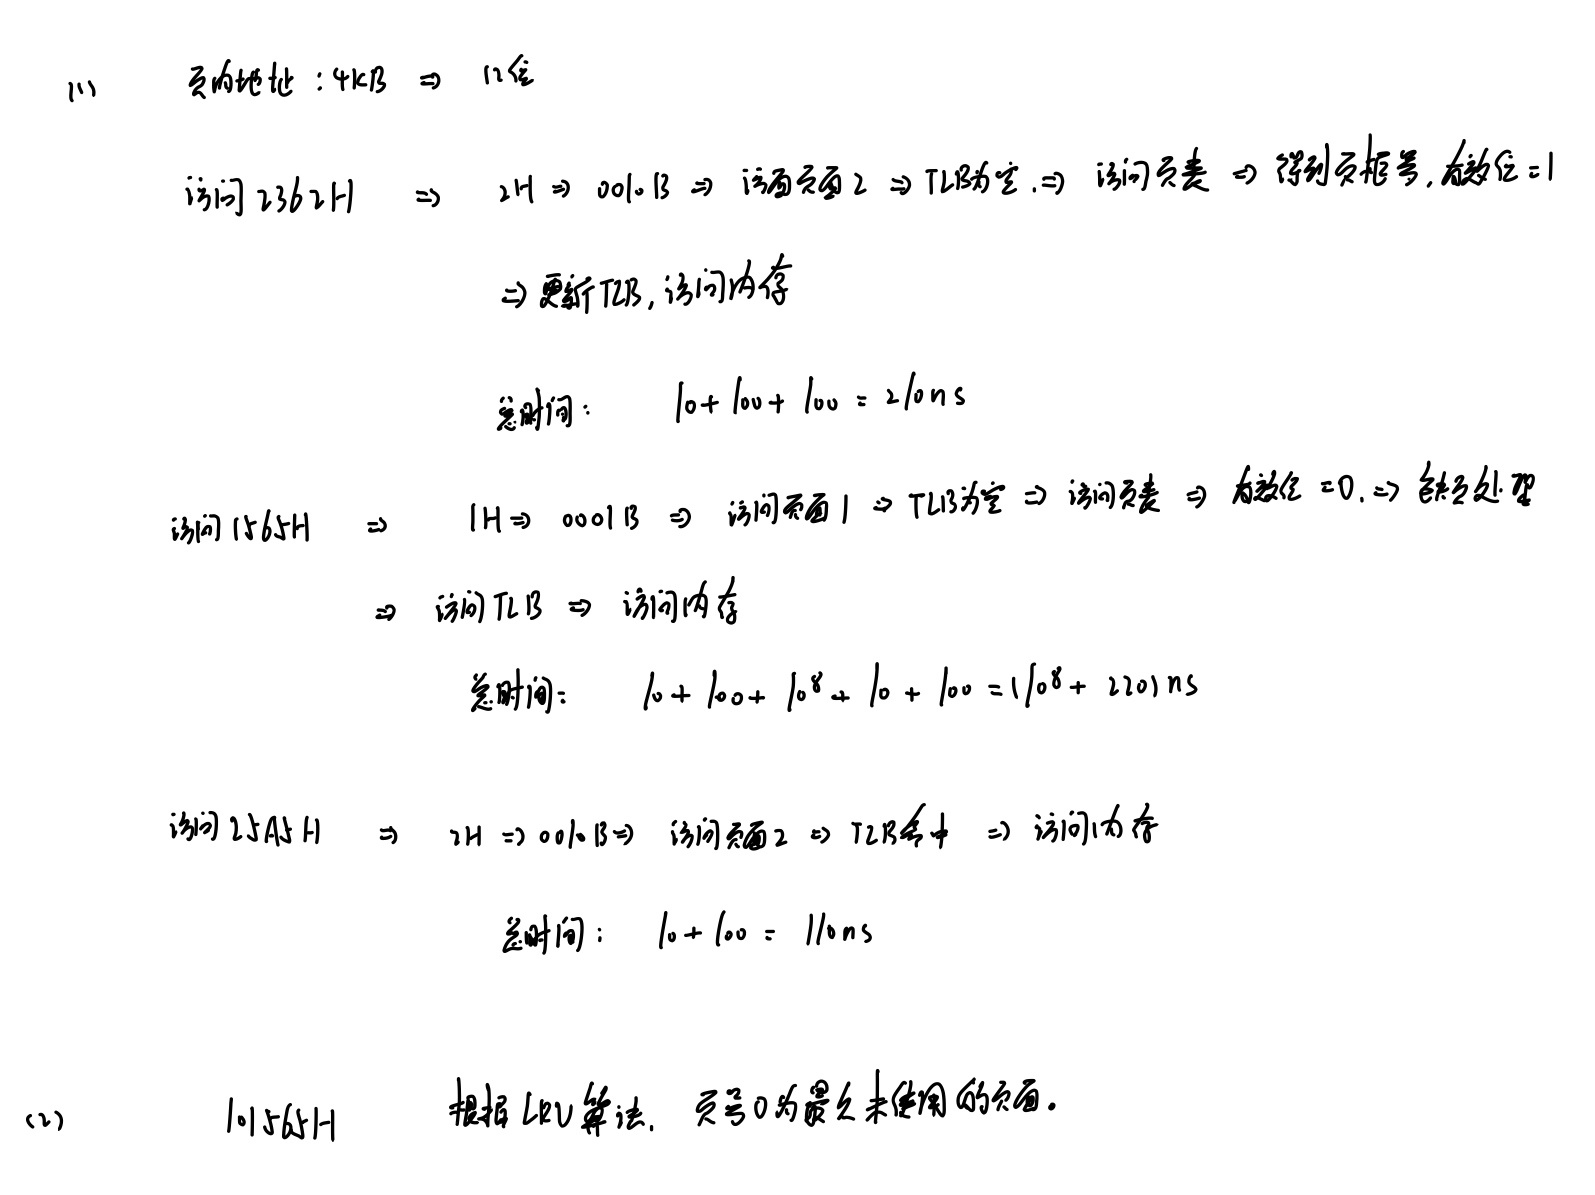 (1) 页内地址：4KB ⇒ 12位
访问2362H ⇒ 2H ⇒ 0010B ⇒ 该面页面2 ⇒ TLB为空. ⇒ 访问页表 ⇒ 得到页框号, 有效位=1
⇒ 更新TLB, 访问内存
总时间： 10+100+100 = 210ns
访问1565H ⇒ 1H ⇒ 0001B ⇒ 访问页面1 ⇒ TLB为空 ⇒ 访问页表 ⇒ 有效位=0. ⇒ 缺页处理
⇒ 访问TLB ⇒ 访问内存
总时间： 10+100+10⁸+10+100 = (10⁸+220)ns
访问25A5H ⇒ 2H ⇒ 0010B ⇒ 访问页面2 ⇒ TLB命中 ⇒ 访问内存
总时间： 10+100 = 110ns
(2) 101565H 根据LRU算法, 页号0为最久未使用的页面.